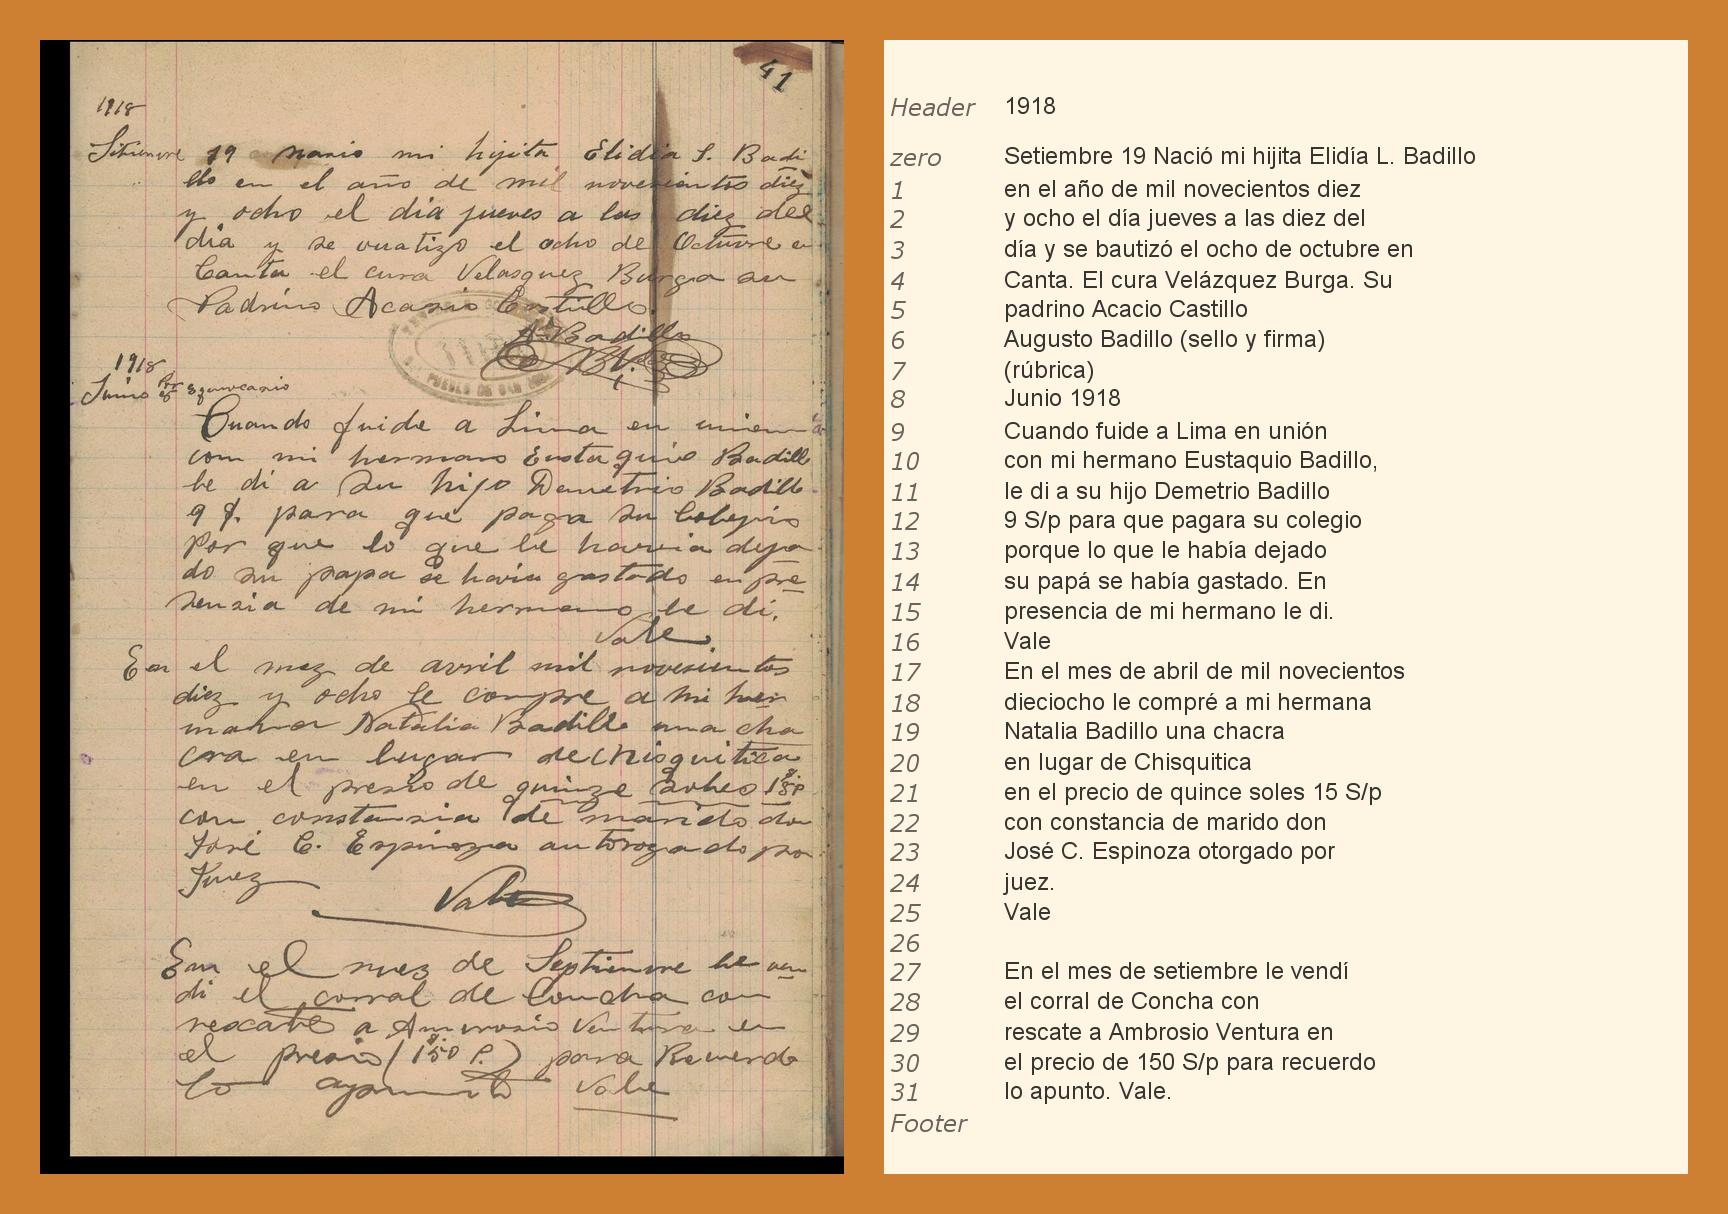 41
1918
Setiembre 19 nacio mi hijita Elidia S. Badi
llo en el año de mil novesientos diez
y ocho el dia jueves a las diez del
dia y se vautizo el ocho de Octuvre e
Canta el cura Velasquez Burga su
Padrino Acasio Castillo.
A. Badillo
1918
Junio
Cuando fuide a Lima en union
con mi hermano Eustaquio Badillo
le di a su hijo Demetrio Badillo
9 $. para que paga su Colegio
Por que lo que le havia deja
do su papa se havia gastado en pre
sensia de mi hermano le di.
Vale
En el mez de avril mil novesientos
diez y ocho le compre a mi her
mana Natalia Badillo una cha
cra en lugar de Chisquitica
en el presio de quinze soles 15
con constansia de marido don
José C. Espinoza autorogado por
Juez
Vale
En el mez de Septiemvre le ven
di el corral de Concha con
rescate a Amvrosio Ventura en
el presio (150 P.) para Recuerdo
lo apunto Vale
Header 1918
zero Setiembre 19 Nació mi hijita Elidía L. Badillo
1 en el año de mil novecientos diez
2 y ocho el día jueves a las diez del
3 día y se bautizó el ocho de octubre en
4 Canta. El cura Velázquez Burga. Su
5 padrino Acacio Castillo
6 Augusto Badillo (sello y firma)
7 (rúbrica)
8 Junio 1918
9 Cuando fuide a Lima en unión
10 con mi hermano Eustaquio Badillo,
11 le di a su hijo Demetrio Badillo
12 9 S/p para que pagara su colegio
13 porque lo que le había dejado
14 su papá se había gastado. En
15 presencia de mi hermano le di.
16 Vale
17 En el mes de abril de mil novecientos
18 dieciocho le compré a mi hermana
19 Natalia Badillo una chacra
20 en lugar de Chisquitica
21 en el precio de quince soles 15 S/p
22 con constancia de marido don
23 José C. Espinoza otorgado por
24 juez.
25 Vale
26
27 En el mes de setiembre le vendí
28 el corral de Concha con
29 rescate a Ambrosio Ventura en
30 el precio de 150 S/p para recuerdo
31 lo apunto. Vale.
Footer